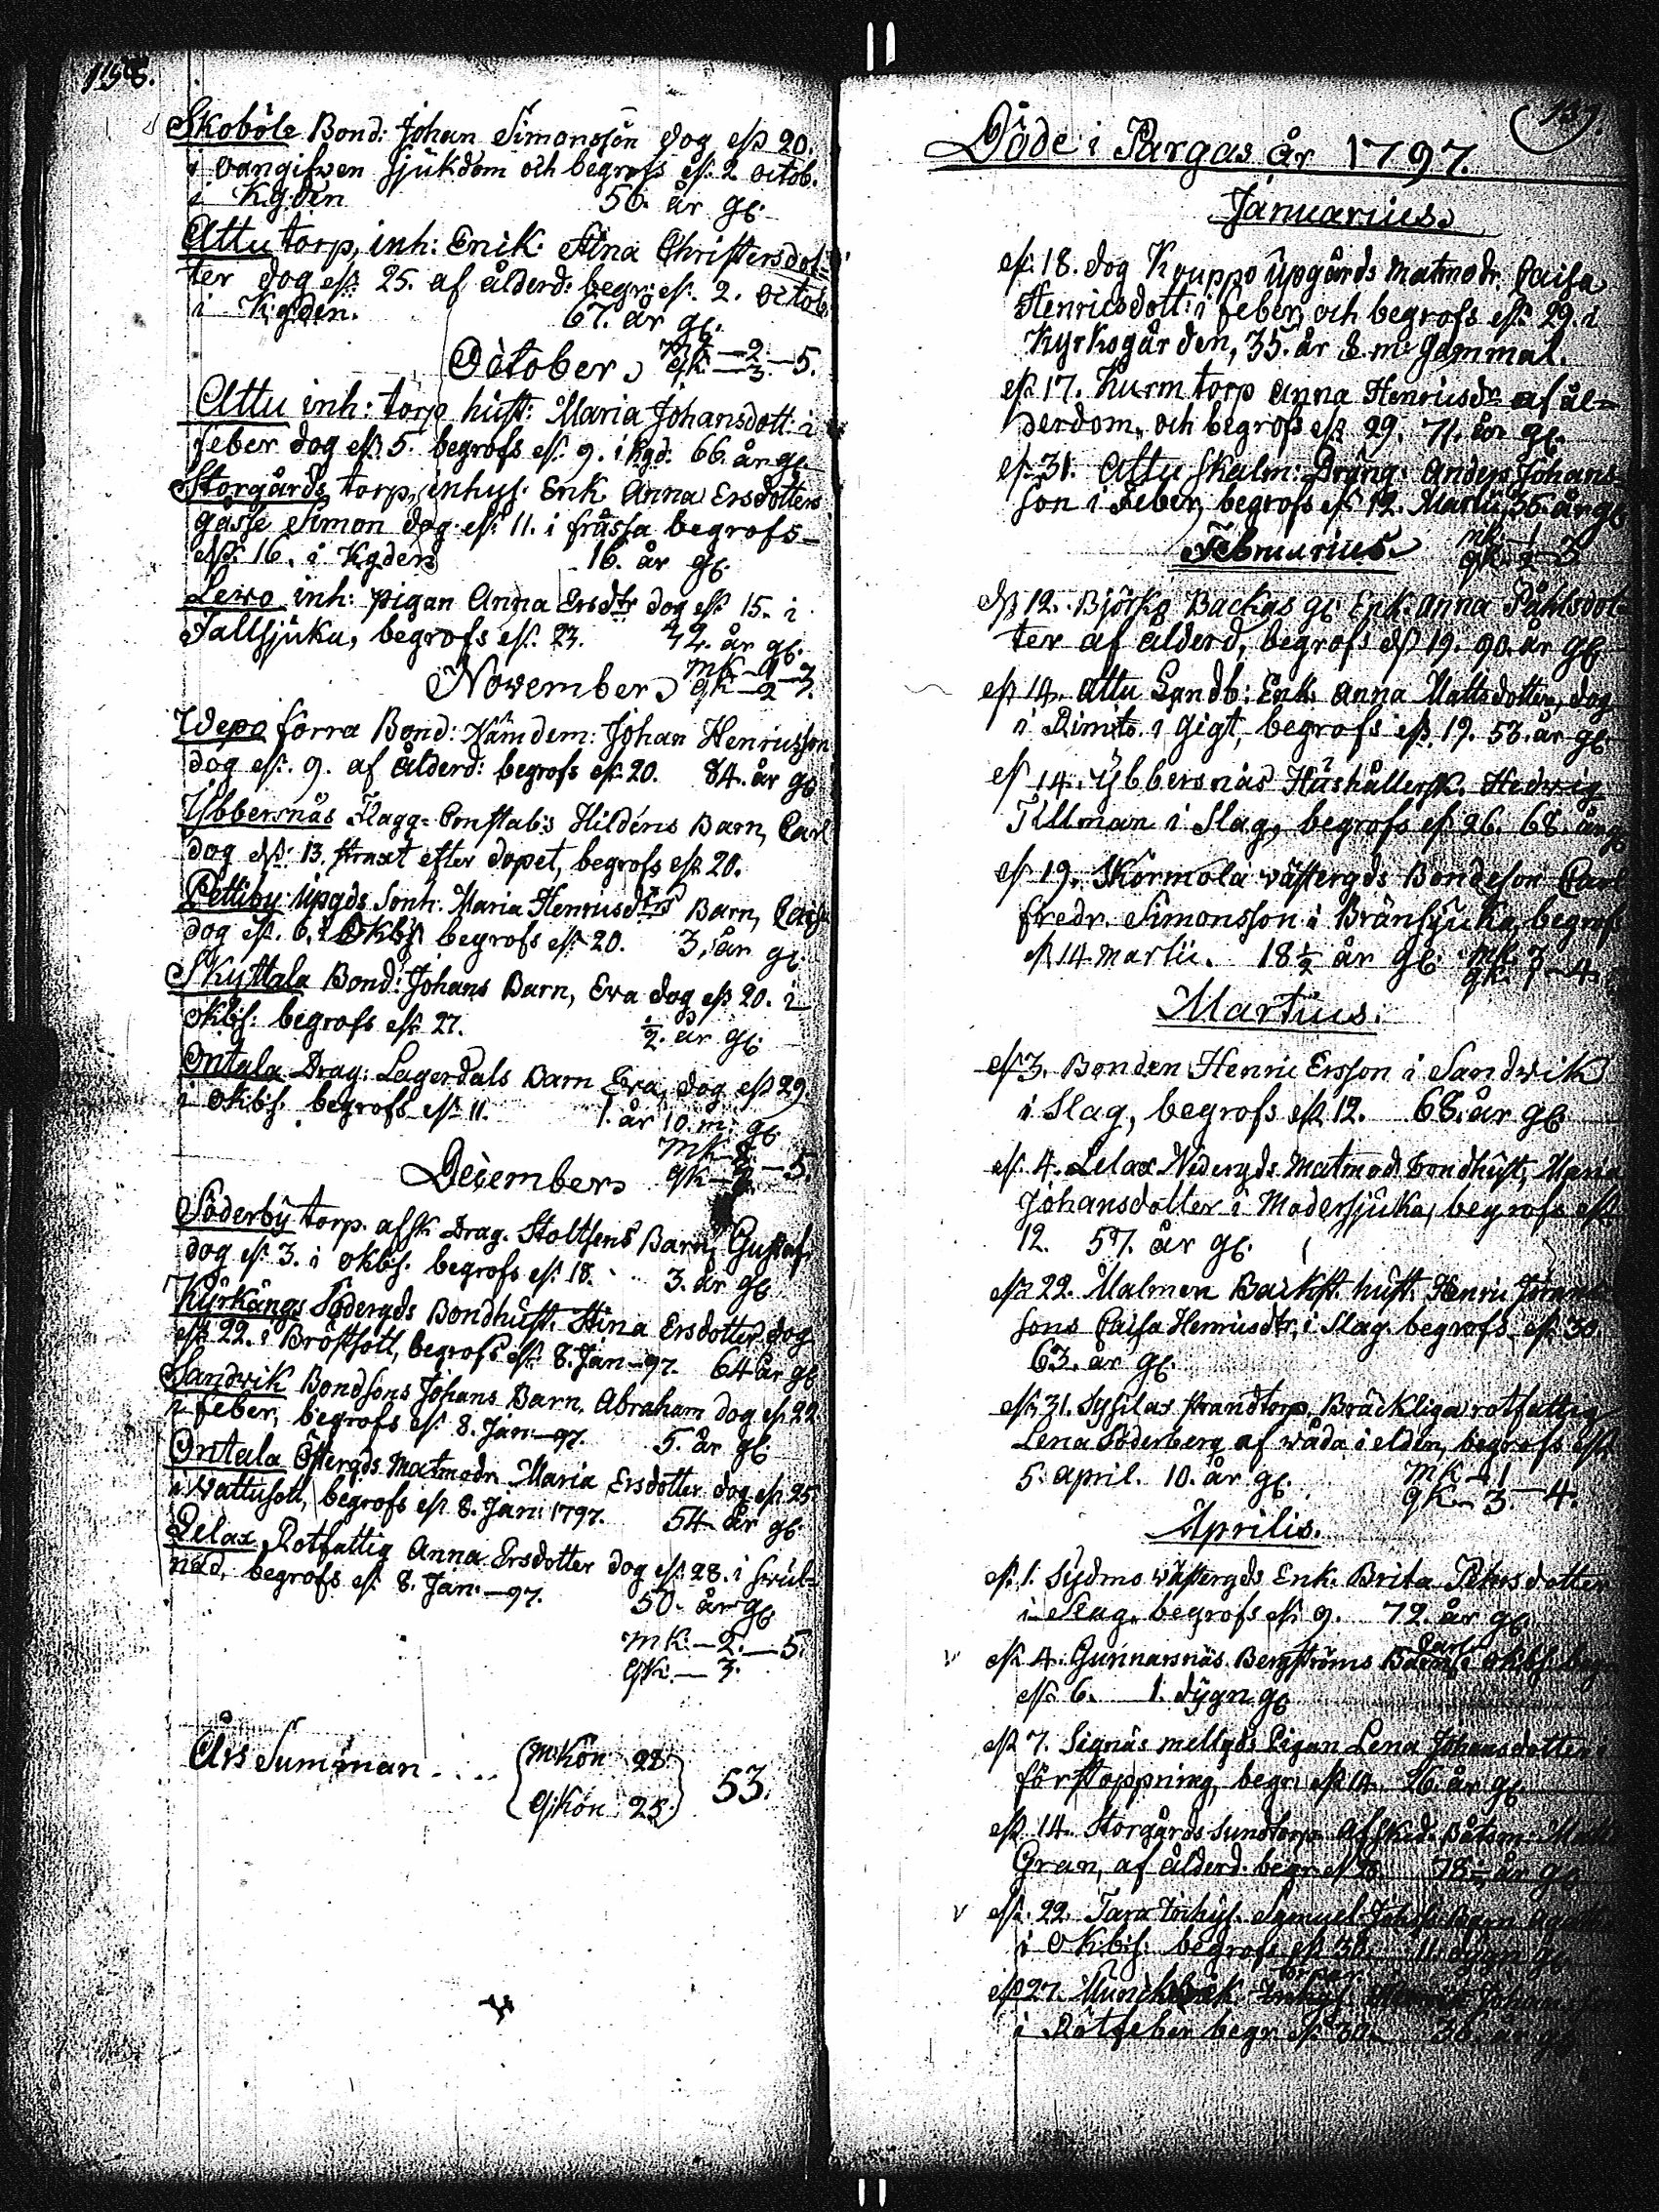 Skoböle Bond: Johan Simonsson dog d. 20.
i oangifwen sjukdom och begrofs d. 2 octob.
i K.gden 56. år gl.
Attu torp, inh: Enk: Stina Christersdot-
ter dog d. 25. af ålderd: begr: d. 2. octob.
i K:gden. 67. år gl.
mk 2
October gk. 3. 5.
Attu inh: torp. hust: Maria Johansdott: i
feber dog d. 5. begrofs d. 9. i kgd: 66. år gl.
Storgårds torp, inhys. Enk. Anna Ersdotters
gosse Simon dog d. 11. i frossa begrofs
d. 16. i Kgden 16. år gl.
Lewo inh: pigan Anna Ersdtr dog d. 15. i
Fallsjuka, begrofs d. 23. 42. år gl.
mk 1
November gk 2 3.
Wepo förra Bond: Nämdem: Johan Henricsson
dog d. 9. af Ålderd: begrofs d. 20. 84. år gl
Ybbersnäs Flagg-Constab:s Hildéns Barn, Carl
dog d. 13. straxt efter dopet, begrofs d. 20.
Pettiby Upgds Sonh. Maria Henricsdtrs Barn, Caisa
dog d. 6. i Okbs begrofs d. 20. 3. år gl.
Skyttala Bond: Johans Barn, Eva dog d. 20. i
okbs: begrofs d. 27. ½. år gl.
Ontala Drag: Lagerdals Barn Eva, dog d. 29
i okbs. begrofs d. 11. 1. år 10. m: gl
mk
December gk 5.
Söderby torp. afsk. Drag. Stoltsens Barn, Gustaf,
dog d. 3. i okbs. begrofs d. 18. 3. år gl
Kyrkängs Södergds Bondhust. Stina Ersdotter dog
d. 22. i Bröstsott, begrofs d. 8. Jan. 97. 64 år gl
Sandvik Bondsons Johans Barn, Abraham dog d. 22
i feber, begrofs d. 8. Jan. 97. 5. år gl.
Ontala Östergds Matmodr Maria Ersdotter dog d. 25.
i Wattusott, begrofs d. 8. Jan: 1797. 54 år gl.
Lelax Rotfattig Anna Ersdotter dog d. 28. i
begrofs d. 8. Jan. 97. 50. år gl
mk. 2. 5.
gk. 3.
Års Summan .... m:kön 28. 53.
q:kön 25.
139.
Döde i Pargas år 1797.
Januarius.
d. 18. dog Kouppo Upgårds Matmodr. Caisa
Henricsdott: i feber, och begrofs d. 29. i
Kyrkogården, 35. år 8. m. gammal.
d. 17. torp Anna Henricsdr af ål-
derdom, och begrofs d. 29. 71. år gl.
d. 31. Attu Skalm: Dräng: Anders Johans-
son i Feber, begrofs d. 12. Martii, 36. år gl
mk. 1
Februarius. gk. 2 3
d. 12. Björkö Backas gl: Enk. Anna Påhlsdot-
ter af ålderd, begrofs d. 19. 90. år gl
d. 14. Attu Sandb: Enk. Anna Mattsdotter, dog
i Rimito i Gigt, begrofs d. 19. 53. år gl
d. 14. Ybbersnäs Hushållersk. Hedwig
Tillman i Slag, begrofs d. 26. 68. år gl
d. 19. Skörmola Wästergds Bondeson Carl
Fredr. Simonsson i Bränsjuka, begrofs
d. 14 Martii. 18 ½ år gl. mk. 3
gk. 1 4.
Martius.
d. 3. Bonden Henric Ersson i Sandwik
i Slag, begrofs d. 12. 68. år gl.
d. 4. Lelax Nedergds Matmod: Bondhust, Maria
Johansdotter i Modersjuka, begrofs d.
12. 57. år gl.
d. 22. Malmen Backst. hust. Henric
sons Caisa Henricsdtr, i Slag. begrofs d. 30.
63. år gl.
d. 31. Sysilax Strandtorp, Bräckliga rotfattig
Lena Söderberg af wåda i elden, begrofs d.
5. April. 10. år gl. mk 1
gk. 3. 4.
Aprilis.
d. 1. Sydmo Wästergds Enk. Brita Petersdotter
i Slag, begrofs d. 9. 72. år gl
d. 4. Gunnarsnäs Bergströms Barn Carl i okbs. begr
d. 6. 1. dygn gl
d. 7. Signäs mellgds Pigan Lena Johansdotter i
förstoppning, begr: d. 14. 26. år gl
d. 14. Storgårds Sundtorp Afsked. Båtsm: Matts
Gran, af ålderd. begr. d. 78 ½ år gl
d. 22. Tara inhys. Samuel Barn
i Okbs: begrofs d. 30. 11. dygn gl
d. 27. torpar. Johan
i Rötfeber begr. d. 30. 36. år gl